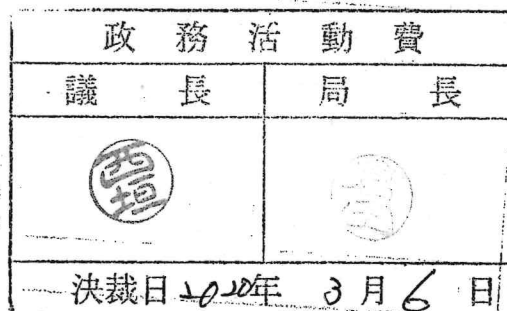 政務活動費
議長 局長
西垣
決裁日2020年 3月6日